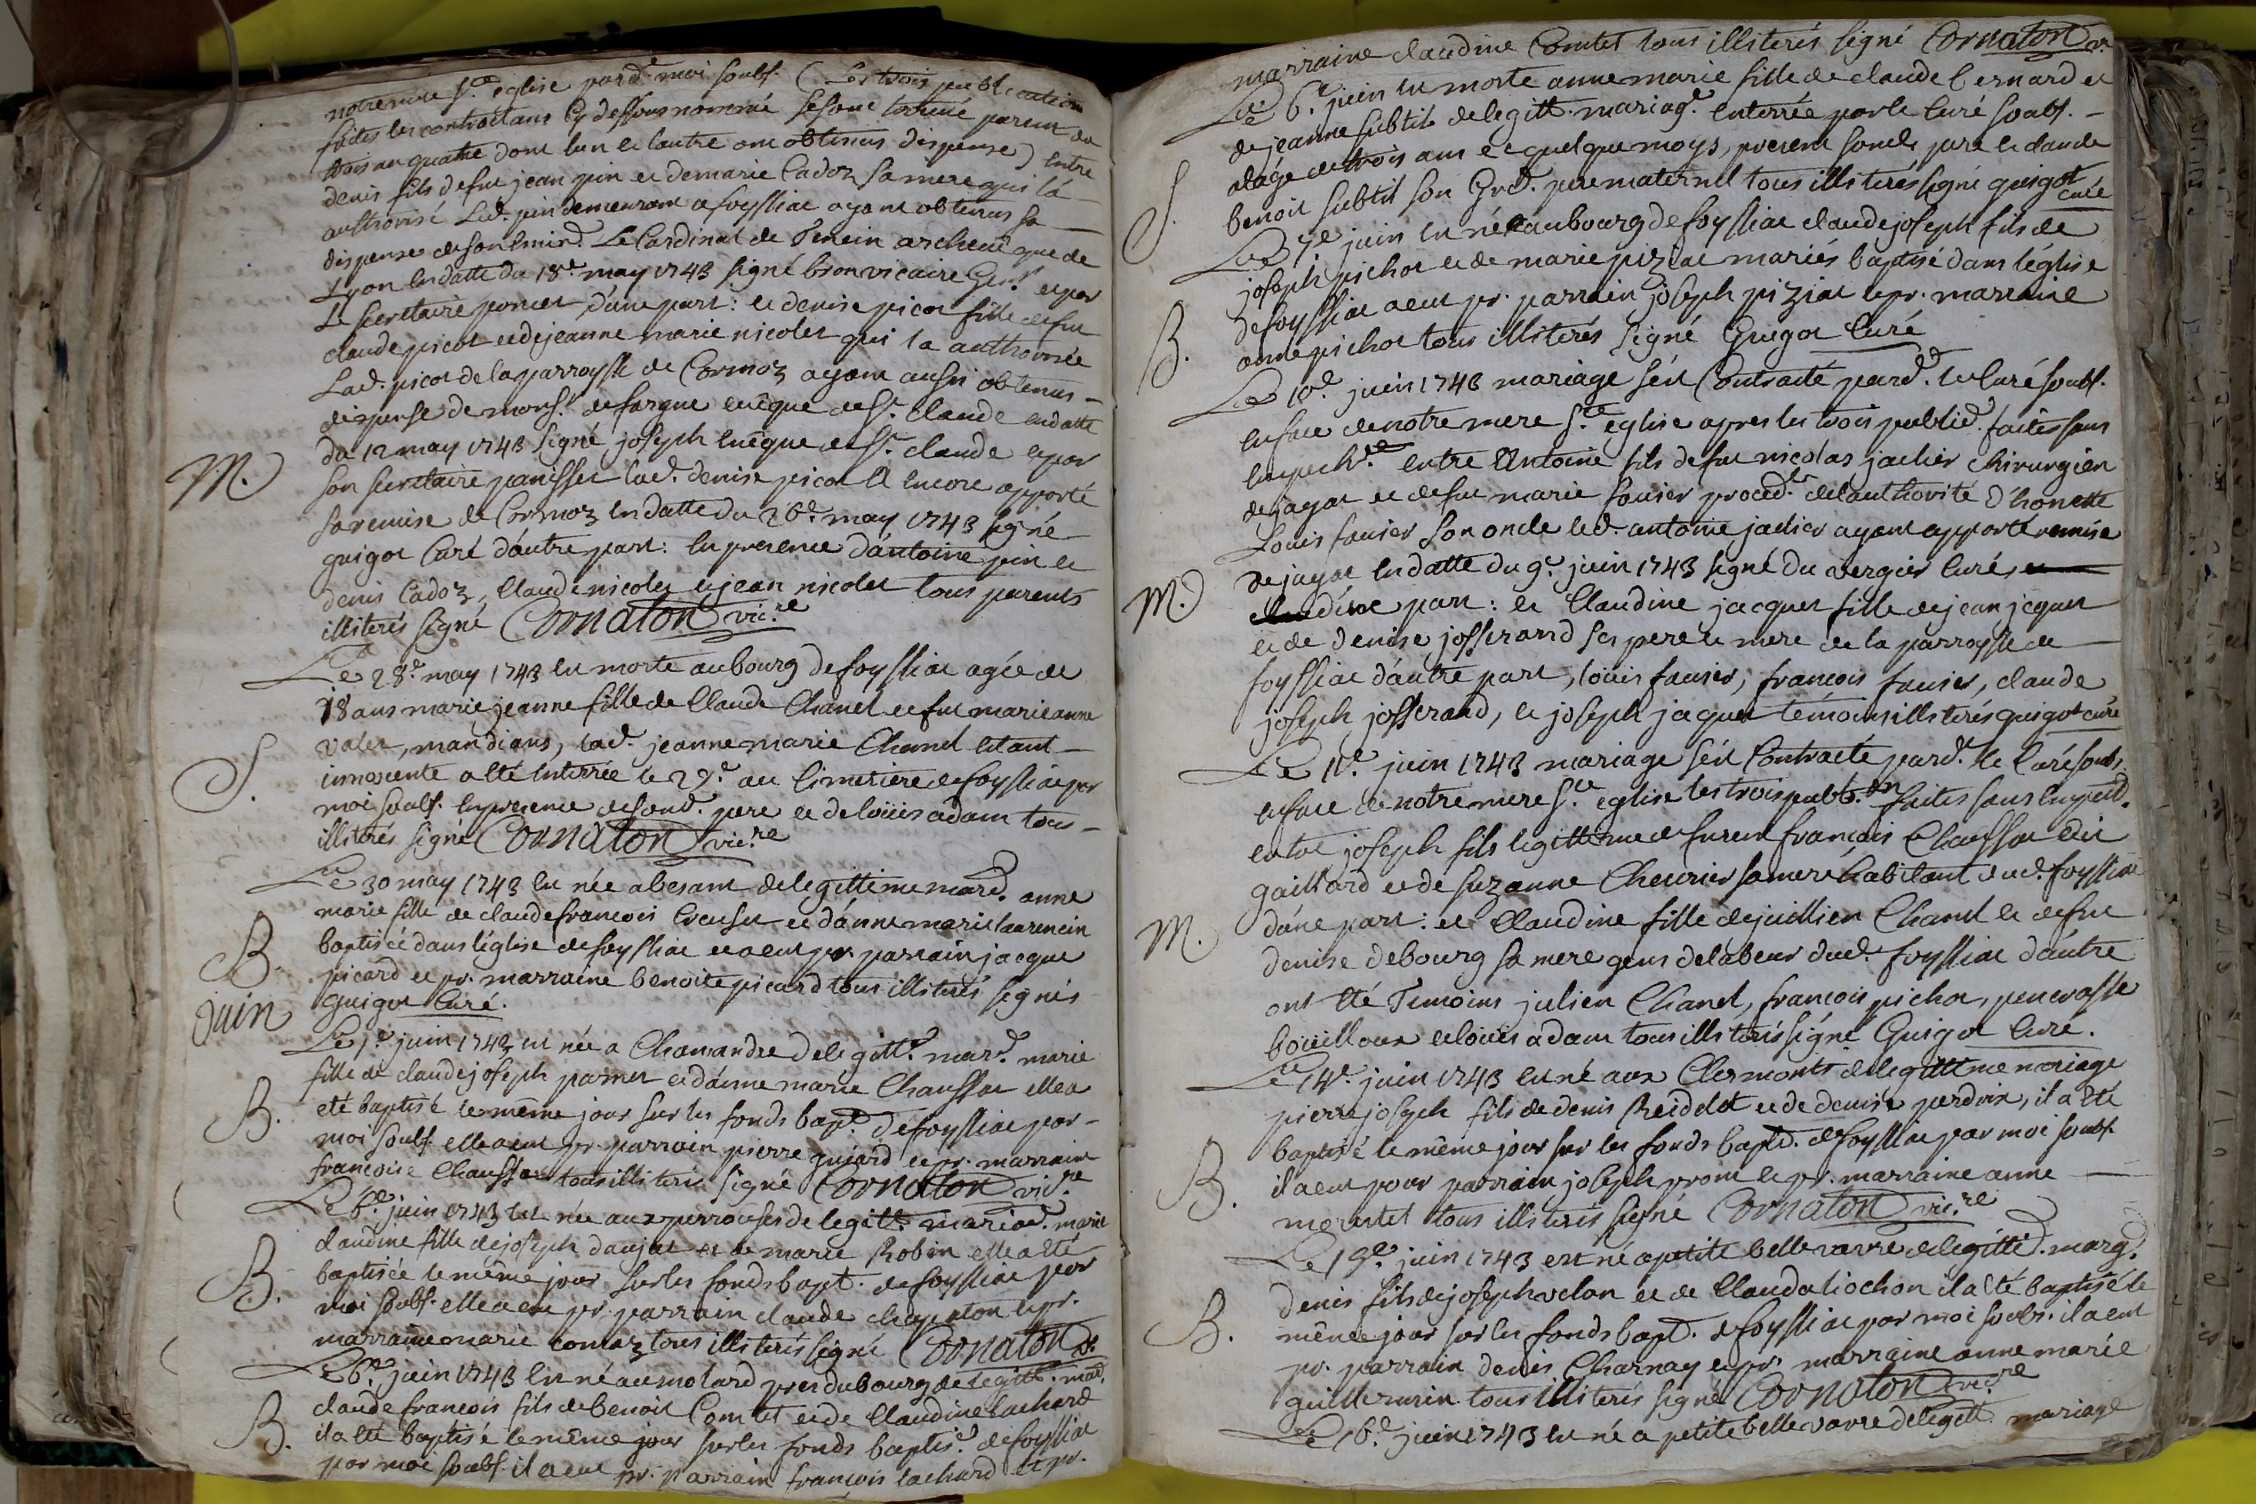 notre mere Ste église pard. moi soubs. ( Les trois publications
faites les contractans cy dessous nommé se sont trouvé parent du
trois au quatre dont l'un et l'autre ont obtenus dispense ) entre
denis fils de fut jean pin et de marie Cadoz sa mere qui l'a
authorisé Led. pin demeurant a foyssiac ayant obtenus sa
dispense de son Emind. Le Cardinal de Tencin archeveque de
Lyon en datte du 18e may 1743 signé bron vicaire Gnrl et par
Le secretaire poncet d'une part : et denise picot fille de fut
claude picot et de jeanne marie nicolet qui l'a authorisée
Lad. picot de la parroysse de Cormoz ayant aussi obtenus
dispense de monsr. de fargue evêque de St. claude en datte
du 12 may 1743 signé joseph evêque de St. claude et par
M. son secretaire panisset lad. denise picot a encore apporté
sa remise de Cormoz en datte du 26e may 1743 signé
guigot Curé d'autre part : en presence d'antoine pin et
denis Cadoz, Claude nicolet et jean nicolet tous parents
illiterés signé Cornaton vic.re
Le 28e may 1743 est morte au bourg de foyssiac agée de
18 ans marie jeanne fille de Claude Chanel et fut marie anne
valet, mandians, lad. jeanne marie Chanel etant
S. innocente a été enterrée le 29e au Cimetiere de foyssiac par
moi soubs. en presence de sond. pere et de loüis adam tous
illiterés signé Cornaton vic.re
Le 30 may 1743 est née a besant de legittime mard. anne
marie fille de claude françois Creuset et d'anne marie laurencin
B. baptisée dans l'église de foyssiac et a eut pr. parrain jacque
picard et pr. marraine benoite picard tous illiterés signés
juin guigot Curé.
Le 1e juin 1743 est née a Chamandre de legitt. mard. marie
fille de claude joseph parnet et d'anne marie Chaussat elle a
B. eté baptisé le même jour sur les fonds bapt. de foyssiac par
moi soubs. elle a eut pr. parrain pierre pujard et pr. marraine
françoise Chaussat tous illiteris signé Cornaton vic.re
Le 6e juin 1743 est née aux perrouses de legitt. mariad. marie
claudine fille de joseph daujat et de marie Robin elle a été
B. baptisée le même jour sur les fonds bapt. de foyssiac par
moi soubs. elle a eut pr. parrain claude chapaton et pr.
marraine marie comtaz tous illiterés signé Cornaton v.
Le 6e juin 1743 est né au molard pres du bourg de legitt. mad.
claude françois fils de benoit Comtet et de Claudine lachard
B. il a été baptisé le même jour sur les fonds baptis. de foyssiac
par moi soubs. il a eut pr. parrain françois lachard et pr.
marraine claudine Comtet tous illiterés signé Cornaton v.
Le 6e juin est morte anne marie fille de claude bernard et
de jeanne subtil de legitt. mariag. enterrée par le curé soubs.
S. a l'age de trois ans et quelque moys, present sond. pere et claude
benoit subtil son Grd. pere maternel tous illiterés signé guigot curé
Le 7e juin est né au bourg de foyssiac claude joseph fils de
joseph pichot et de marie piziat mariés baptisé dans l'église
B. de foyssiac a eut pr. parrain joseph piziat et pr. marraine
anne pichot tous illiterés signé Guigot Curé
Le 10e juin 1743 mariage s'est Contracté pard. le Curé soubs.
en face de notre mere Ste église apres les trois publid. faites sans
empech. entre Antoine fils de fut nicolas jaclier chirurgien
de jayat et de fut marie fausier proced. de l'authorité d'honette
Louis fausier son oncle led. antoine jaclier ayant apporté remise
M. de jayat en datte du 9e juin 1743 signé du vergier Curé,
d'une part : et Claudine jacquet fille de jean jcquet
et de denise josserand ses pere et mere de la parroysse de
foyssiac d'autre part, loüis fausier, françois fausier, claude
joseph josserand, et joseph jaquet témoins illiterés guigot curé
Le 11e juin 1743 mariage s'est Contracté pard. le Curé soubs.
en face de notre mere Ste église les trois publ.on faites sans empéd.
entre joseph fils legittime de fureut françois Chaussat dit
gaillard et de suzanne Cheurier sa mere habitant dud. foyssiac
M. d'une part : et Claudine fille de juillien Chanel et de fut
denise debourg sa mere gens de labeur dud. foyssiac d'autre
ont été Temoins julien Chanel, françois pichot, pancrasse
boüilloux et loüis adam tous illiterés signé Guigot Curé.
Le 14e juin 1743 est né aux Clermonts de legittime mariage
pierre joseph fils de denis Reidelet et de denise perdrix, il a été
B. baptisé le même jour sur les fonds baptd. de foyssiac par moi soubs.
il a eut pour parrain joseph pront et pr. marraine anne
morestel tous illiterés signé Cornaton vic.re
Le 19e juin 1743 est né a petite belle vavre de legittid. marg.
denis fils de joseph velon et de Clauda liochon il a été baptisé le
B. même jour sur les fonds bapt. de foyssiac par moi soubs. il a eut
pr. parrain denis Charnay et pr. marraine anne marie
guillermin tous illiterés signé Cornaton vic.re
Le 16e juin 1743 est né a petite belle vavre de legitt. mariage